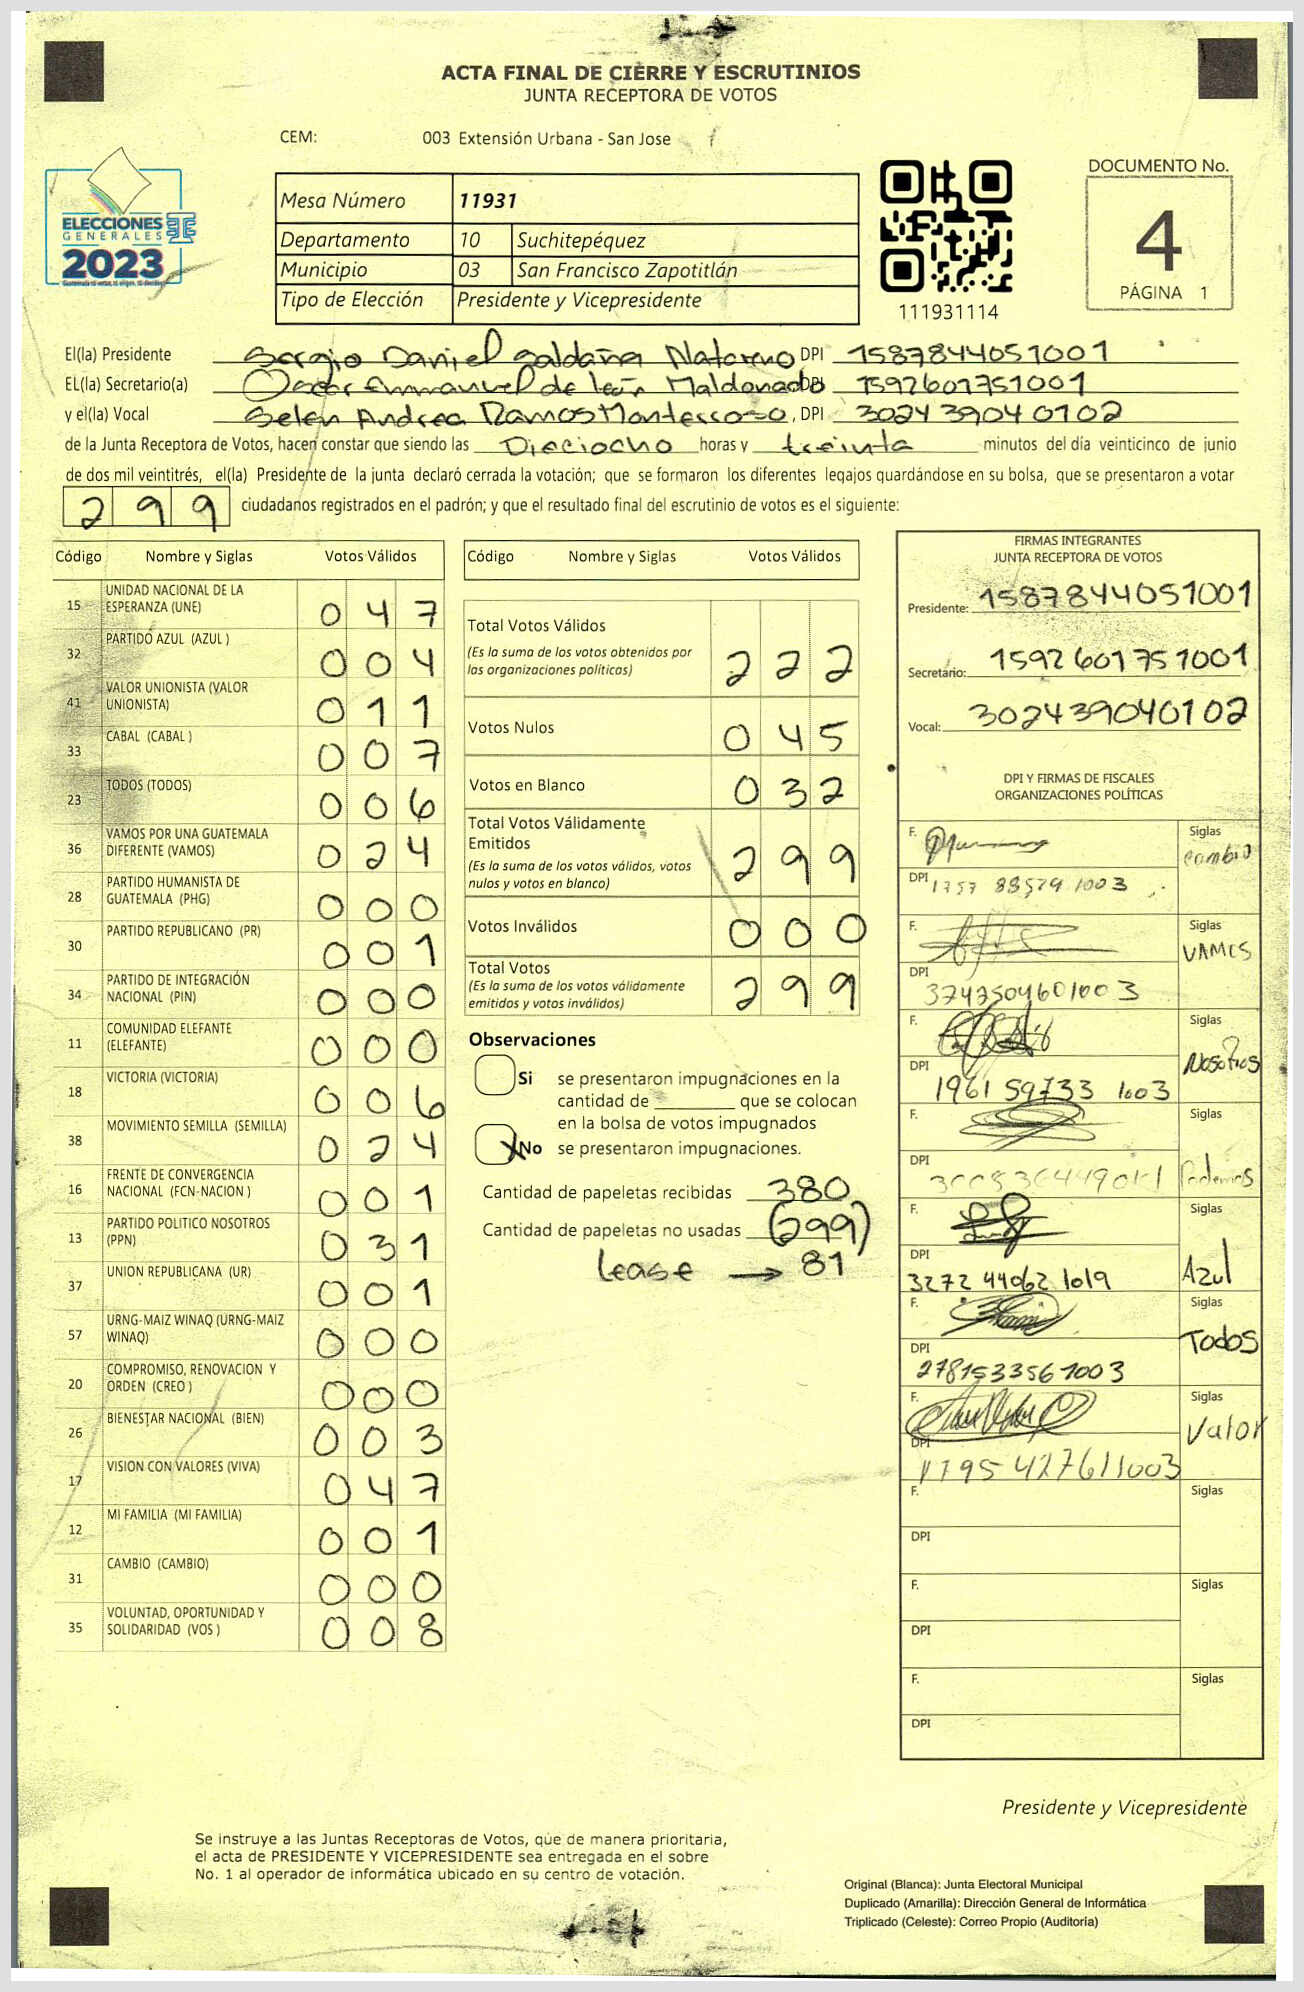 ACTA FINAL DE CIERRE Y ESCRUTINIOS
JUNTA RECEPTORA DE VOTOS
CEM: 003 Extensión Urbana - San Jose
ELECCIONES
GENERALES
2023
Mesa Número 11931
Departamento 10 Suchitepéquez
Municipio 03 San Francisco Zapotitlán
Tipo de Elección Presidente y Vicepresidente
111931114
DOCUMENTO No.
4
PÁGINA 1
El(la) Presidente Sergio Daniel Saldaña Natareno DPI 1587844051001
EL(la) Secretario(a) Oscar Emmanuel de león Maldonado DPI 1592601751001
y el(la) Vocal Selen Andrea Ramos Monterroso, DPI 302439040102
de la Junta Receptora de Votos, hacen constar que siendo las Dieciocho horas y treinta minutos del día veinticinco de junio
de dos mil veintitrés, el(la) Presidente de la junta declaró cerrada la votación; que se formaron los diferentes legajos quardándose en su bolsa, que se presentaron a votar
299 ciudadanos registrados en el padrón; y que el resultado final del escrutinio de votos es el siguiente:
Código Nombre y Siglas Votos Válidos
15 UNIDAD NACIONAL DE LA
ESPERANZA (UNE) 047
32 PARTIDO AZUL (AZUL ) 004
41 VALOR UNIONISTA (VALOR
UNIONISTA) 011
33 CABAL (CABAL ) 007
23 TODOS (TODOS) 006
36 VAMOS POR UNA GUATEMALA
DIFERENTE (VAMOS) 024
28 PARTIDO HUMANISTA DE
GUATEMALA (PHG) 000
30 PARTIDO REPUBLICANO (PR) 001
34 PARTIDO DE INTEGRACIÓN
NACIONAL (PIN) 000
11 COMUNIDAD ELEFANTE
(ELEFANTE) 000
18 VICTORIA (VICTORIA) 006
38 MOVIMIENTO SEMILLA (SEMILLA) 024
16 FRENTE DE CONVERGENCIA
NACIONAL (FCN-NACION ) 001
13 PARTIDO POLITICO NOSOTROS
(PPN) 031
37 UNION REPUBLICANA (UR) 001
57 URNG-MAIZ WINAQ (URNG-MAIZ
WINAQ) 000
20 COMPROMISO, RENOVACION Y
ORDEN (CREO ) 000
26 BIENESTAR NACIONAL (BIEN) 003
17 VISION CON VALORES (VIVA) 047
12 MI FAMILIA (MI FAMILIA) 001
31 CAMBIO (CAMBIO) 000
35 VOLUNTAD, OPORTUNIDAD Y
SOLIDARIDAD (VOS ) 008
Código Nombre y Siglas Votos Válidos
Total Votos Válidos
(Es la suma de los votos obtenidos por
las organizaciones políticas) 222
Votos Nulos 045
Votos en Blanco 032
Total Votos Válidamente
Emitidos
(Es la suma de los votos válidos, votos
nulos y votos en blanco) 299
Votos Inválidos 000
Total Votos
(Es la suma de los votos válidamente
emitidos y votos inválidos) 299
Observaciones
Si se presentaron impugnaciones en la
cantidad de ________ que se colocan
en la bolsa de votos impugnados
X No se presentaron impugnaciones.
Cantidad de papeletas recibidas 380
Cantidad de papeletas no usadas (299)
lease → 81
FIRMAS INTEGRANTES
JUNTA RECEPTORA DE VOTOS
Presidente: 1587844051001
Secretario: 1592601751001
Vocal: 302439040102
DPI Y FIRMAS DE FISCALES
ORGANIZACIONES POLÍTICAS
F. Siglas
cambio
DPI 1757 88529 1003
F. Siglas
VAMOS
DPI
3747504601003
F. Siglas
Nosotros
DPI
1961 59733 1003
F. Siglas
Podemos
DPI
F. Siglas
Azul
DPI
3272 44062 1019
F. Siglas
Todos
DPI
2781533561003
F. Siglas
Valor
DPI
1795 427611003
F. Siglas
DPI
F. Siglas
DPI
F. Siglas
DPI
Presidente y Vicepresidente
Se instruye a las Juntas Receptoras de Votos, que de manera prioritaria,
el acta de PRESIDENTE Y VICEPRESIDENTE sea entregada en el sobre
No. 1 al operador de informática ubicado en su centro de votación.
Original (Blanca): Junta Electoral Municipal
Duplicado (Amarilla): Dirección General de Informática
Triplicado (Celeste): Correo Propio (Auditoría)